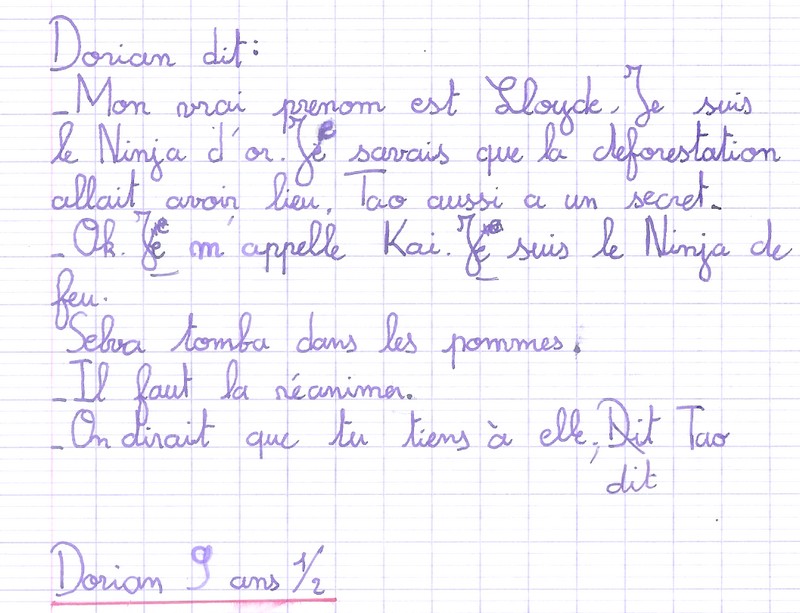 Dorian dit:
_Mon vrai prenom est Lloyde. Je suis
le Ninja d'or. Je savais que la deforestation
allait avoir lieu. Tao aussi a un secret.
_Ok. Je m'appelle Kai. Je suis le Ninja de
feu.
Selva tomba dans les pommes.
_Il faut la réanimer.
_On dirait que tu tiens à elle, Dit Tao
dit
Dorian 9 ans 1/2